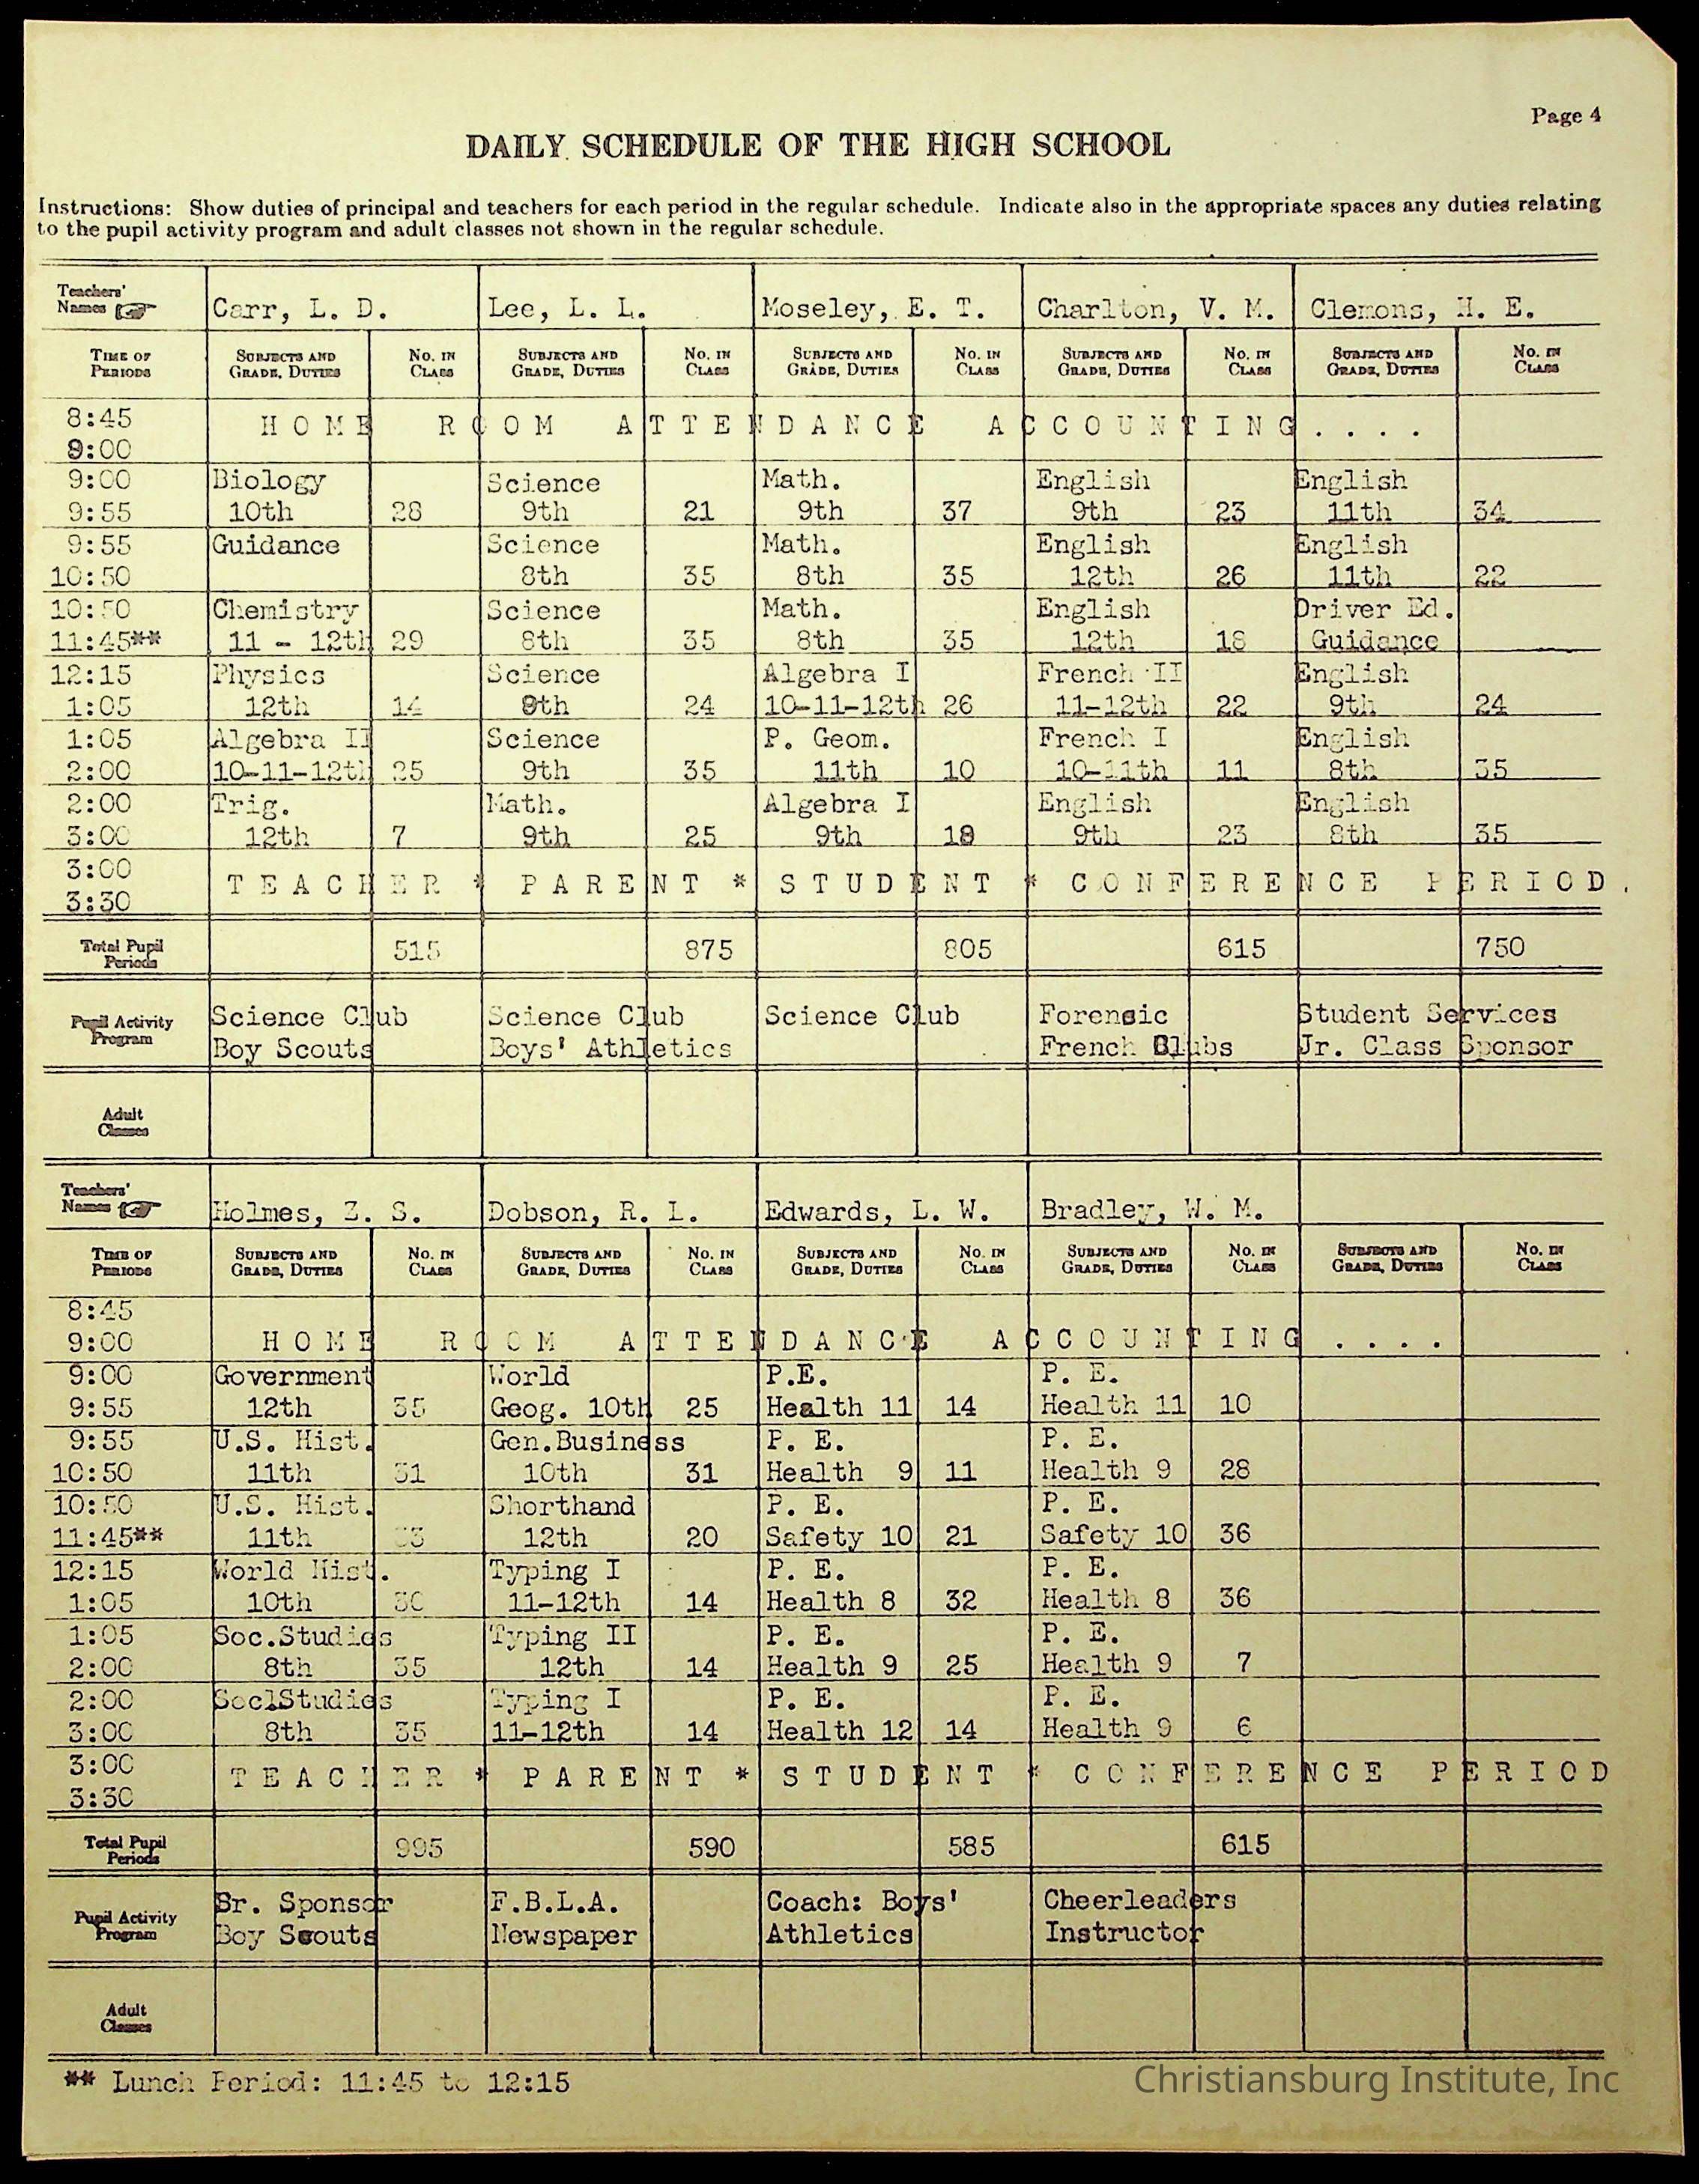 Page 4
DAILY SCHEDULE OF THE HIGH SCHOOL
Instructions: Show duties of principal and teachers for each period in the regular schedule. Indicate also in the appropriate spaces any duties relating
to the pupil activity program and adult classes not shown in the regular schedule.
Teachers'
Names Carr, L. D. Lee, L. L. Moseley, E. T. Charlton, V. M. Clemons, H. E.
TIME OF SUBJECTS AND NO. IN SUBJECTS AND NO. IN SUBJECTS AND NO. IN SUBJECTS AND NO. IN SUBJECTS AND NO. IN
PERIODS GRADE, DUTIES CLASS GRADE, DUTIES CLASS GRADE, DUTIES CLASS GRADE, DUTIES CLASS GRADE, DUTIES CLASS
8:45 HOME ROOM ATTENDANCE ACCOUNTING....
9:00
9:00 Biology Science Math. English English
9:55 10th 28 9th 21 9th 37 9th 23 11th 34
9:55 Guidance Science Math. English English
10:50 8th 35 8th 35 12th 26 11th 22
10:50 Chemistry Science Math. English Driver Ed.
11:45** 11 - 12th 29 8th 35 8th 35 12th 18 Guidance
12:15 Physics Science Algebra I French II English
1:05 12th 14 9th 24 10-11-12th 26 11-12th 22 9th 24
1:05 Algebra II Science P. Geom. French I English
2:00 10-11-12th 25 9th 35 11th 10 10-11th 11 8th 35
2:00 Trig. Math. Algebra I English English
3:00 12th 7 9th 25 9th 18 9th 23 8th 35
3:00 TEACHER * PARENT * STUDENT * CONFERENCE PERIOD.
3:30
Total Pupil 515 875 805 615 750
Periods
Pupil Activity Science Club Science Club Science Club Forensic Student Services
Program Boy Scouts Boys' Athletics French Clubs Jr. Class Sponsor
Adult
Classes
Teachers'
Names Holmes, Z. S. Dobson, R. L. Edwards, L. W. Bradley, W. M.
TIME OF SUBJECTS AND NO. IN SUBJECTS AND NO. IN SUBJECTS AND NO. IN SUBJECTS AND NO. IN SUBJECTS AND NO. IN
PERIODS GRADE, DUTIES CLASS GRADE, DUTIES CLASS GRADE, DUTIES CLASS GRADE, DUTIES CLASS GRADE, DUTIES CLASS
8:45
9:00 HOME ROOM ATTENDANCE ACCOUNTING ....
9:00 Government World P.E. P. E.
9:55 12th 35 Geog. 10th 25 Health 11 14 Health 11 10
9:55 U.S. Hist. Gen.Business P. E. P. E.
10:50 11th 31 10th 31 Health 9 11 Health 9 28
10:50 U.S. Hist. Shorthand P. E. P. E.
11:45** 11th 12th 20 Safety 10 21 Safety 10 36
12:15 World Hist. Typing I P. E. P. E.
1:05 10th 30 11-12th 14 Health 8 32 Health 8 36
1:05 Soc.Studies Typing II P. E. P. E.
2:00 8th 35 12th 14 Health 9 25 Health 9 7
2:00 SoclStudies Typing I P. E. P. E.
3:00 8th 35 11-12th 14 Health 12 14 Health 9 6
3:00 TEACHER * PARENT * STUDENT * CONFERENCE PERIOD
3:30
Total Pupil 995 590 585 615
Periods
Pupil Activity Sr. Sponsor F.B.L.A. Coach: Boys' Cheerleaders
Program Boy Scouts Newspaper Athletics Instructor
Adult
Classes
** Lunch Period: 11:45 to 12:15
Christiansburg Institute, Inc